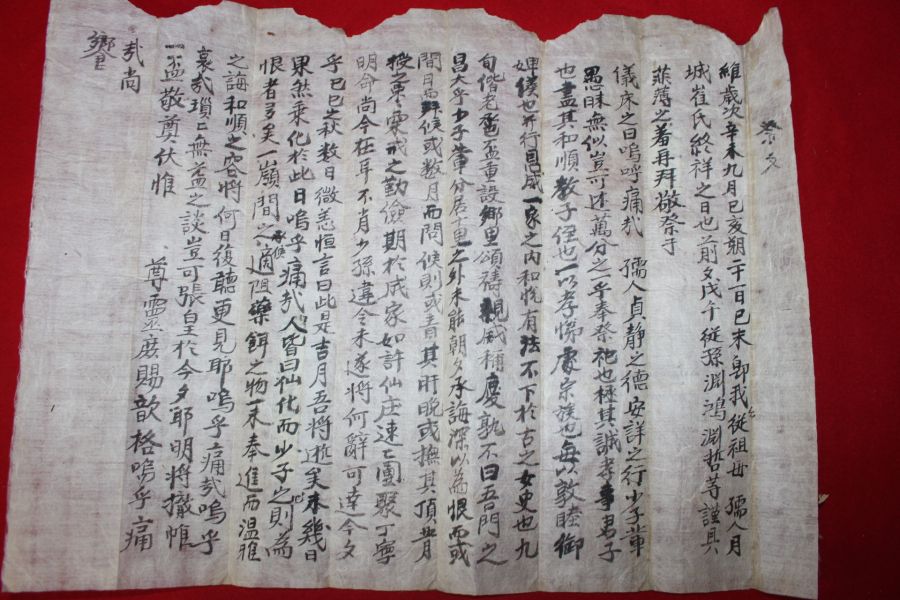 祭文
維歲次辛未九月己亥朔二十一日己未卽我從祖母 孺人月
城崔氏終祥之日也前夕戊午從孫淵鴻淵哲等謹具
菲薄之羞再拜敬祭于
儀床之曰嗚呼痛哉 孺人貞靜之德安詳之行少子輩
愚昧無似豈可述萬分之乎奉祭祀也極其誠孝事君子
也盡其和順敎子侄也一以孝悌處宗族也每以敦睦御
婢僕也並行恩威一家之內和悅有法不下於古之女史也九
旬偕老巹盃重設鄕里頌禱親戚稱慶孰不曰吾門之
昌大乎少子輩分居 里之外未能朝夕承誨深以爲恨而或
間月而拜候或數月而問候則或 其肝晩或撫其頂 月
授之 寒戒之勤儉期於成家如許仙庄速亡團聚丁寧
明命尙今在耳不肖少孫違令未遂將何辭可達今夕
乎己巳之秋數日微恙恒言曰此是吉月吾將逝矣未幾日
果然乘化於此日嗚乎痛哉人皆曰仙化而少子之則爲
恨者多矣一嶺間之 適阻藥餌之物一未奉進而溫雅
之誨和順之容將何日復聽更見耶嗚乎痛哉嗚乎
哀哉瑣瑣無益之談豈可張皇於今夕耶明將撤帷
一盃敬奠伏惟 尊靈庶賜歆格嗚乎痛
哉尙
饗